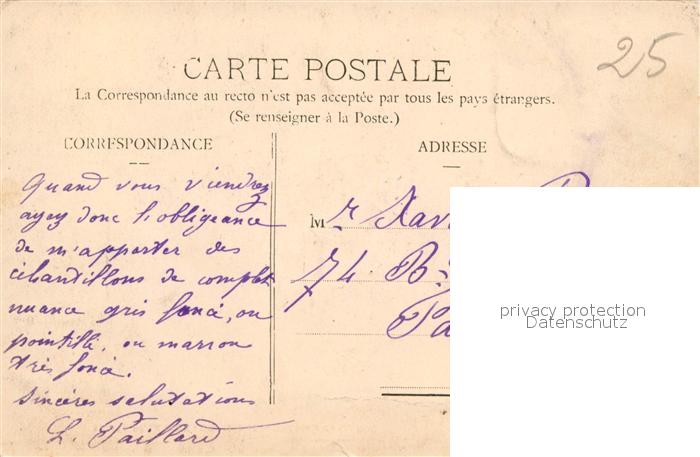 25
CARTE POSTALE
La Correspondance au recto n'est pas acceptée par tous les pays étrangers.
(Se renseigner à la Poste.)
CORRESPONDANCE
ADRESSE
Quand vous viendrez
ayez donc l'obligeance
de m'apporter des
échantillons de complet
nuance gris foncé, ou
pointillé, ou marron
très foncé.
Sincères salutations
L. Paillard
M r Xav
74 B
Pa
privacy protection
Datenschutz